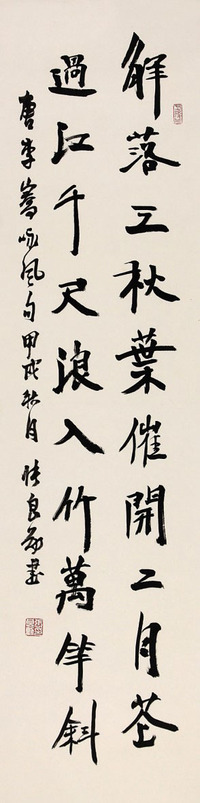 解落三秋葉催開二月花
過江千尺浪入竹萬竿斜
唐李嶠咏風句甲戌秋月張良勋書